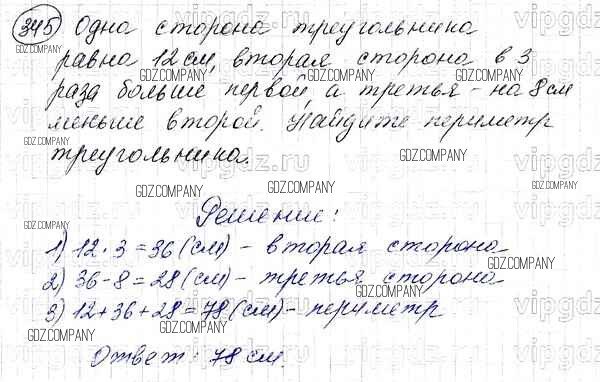 345 Одна сторона треугольника
равна 12 см, вторая сторона в 3
раза больше первой а третья - на 8 см
меньше второй. Найдите периметр
треугольника.
Решение:
1) 12 · 3 = 36 (см) - вторая сторона
2) 36 - 8 = 28 (см) - третья сторона
3) 12 + 36 + 28 = 78 (см) - периметр
Ответ: 78 см.
GDZ.COMPANY
vipgdz.ru